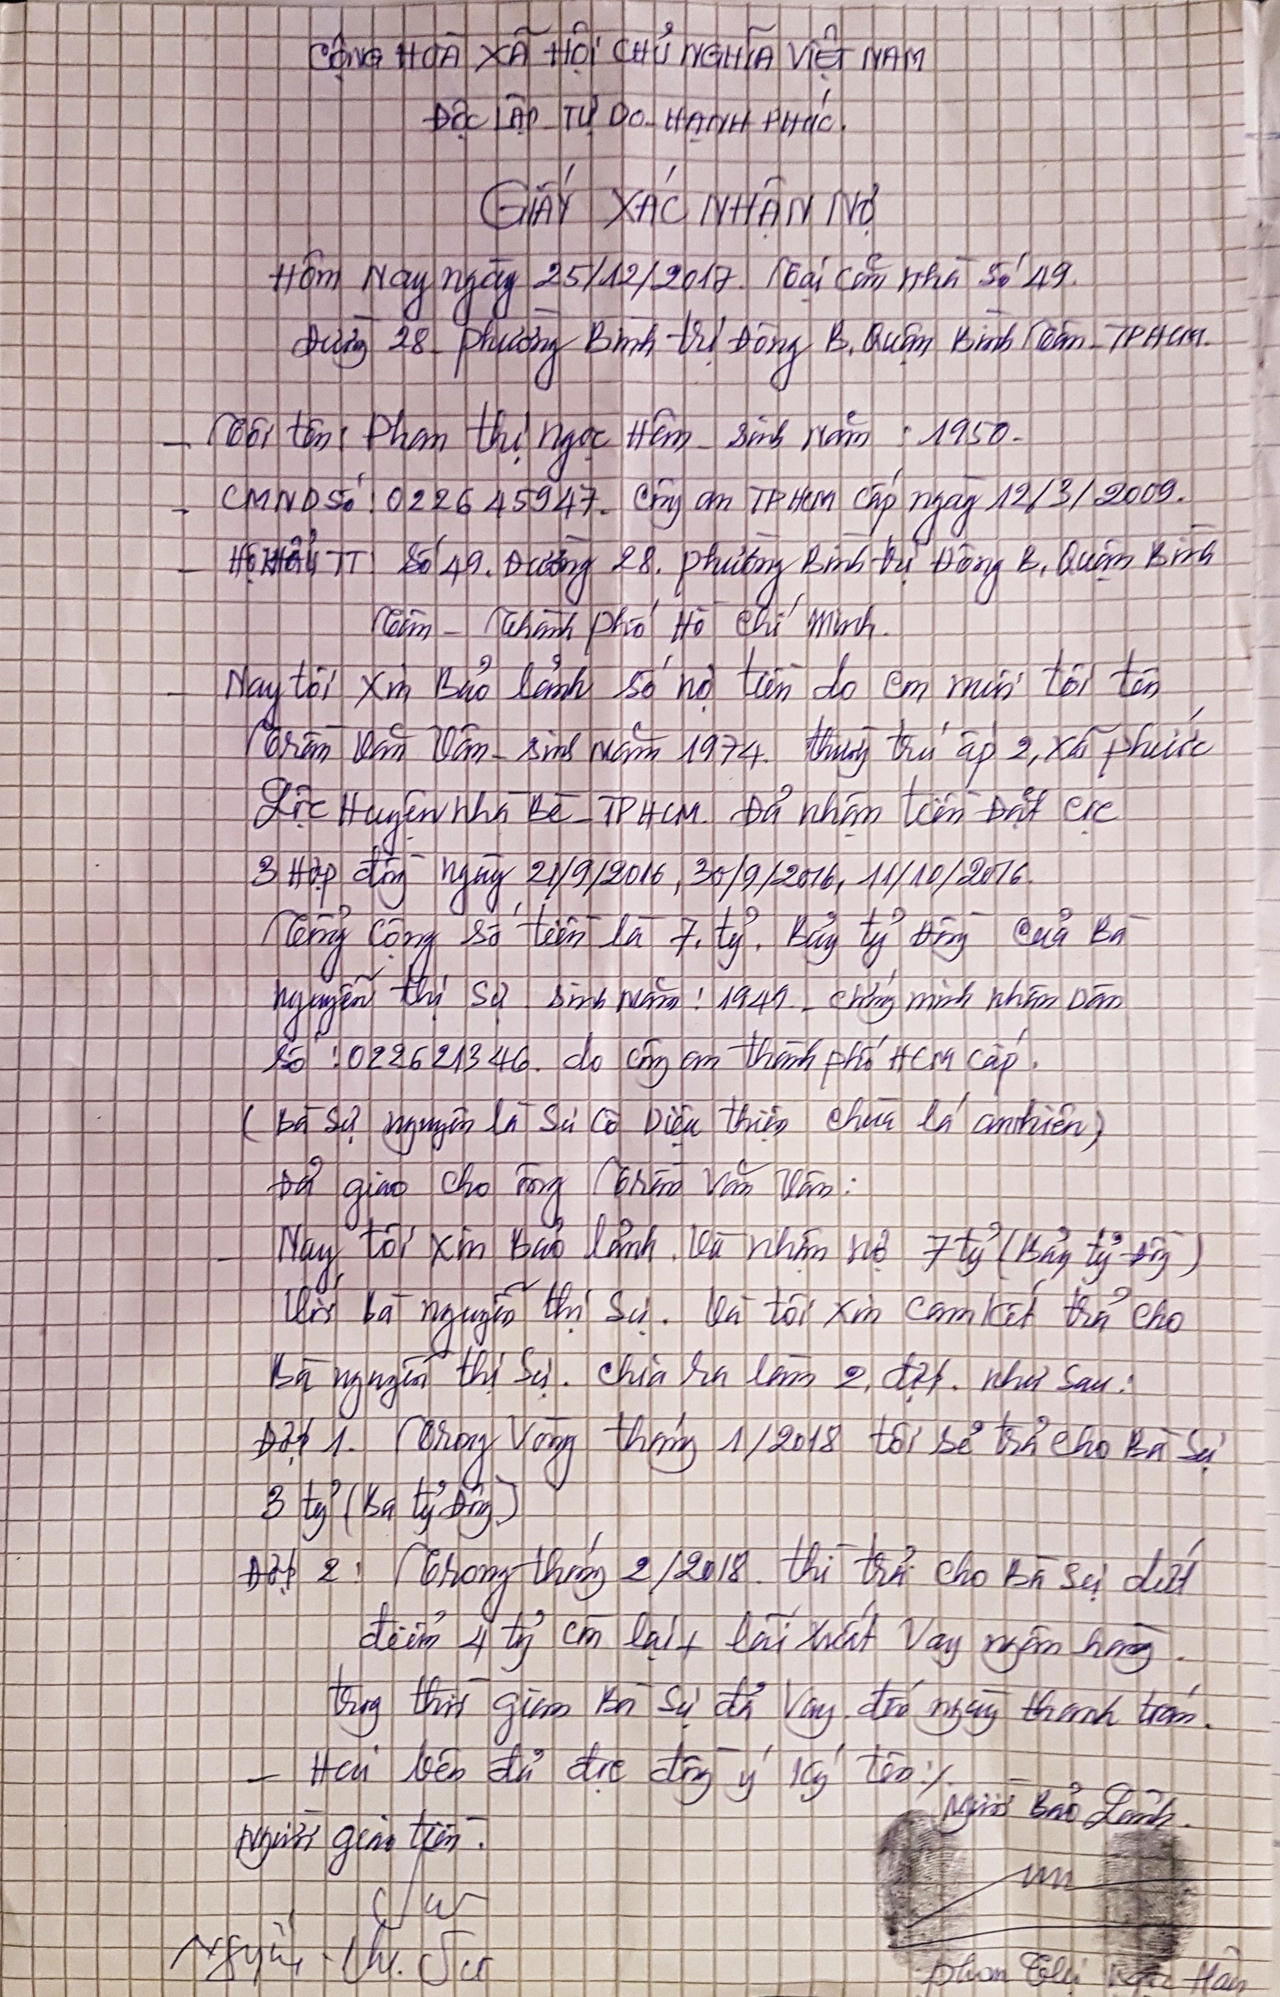 CỘNG HOÀ XÃ HỘI CHỦ NGHĨA VIỆT NAM
ĐỘC LẬP - TỰ DO - HẠNH PHÚC.
GIẤY XÁC NHẬN NỢ
Hôm Nay ngày 25/12/2017. Tại căn nhà số 49.
Đường 28 - phường Bình trị Đông B. Quận Bình Tân - TPHCM.
- Tôi tên: Phan thị ngọc Hân - sinh năm: 1950.
- CMND số: 022645947. Công an TPHCM cấp ngày 12/3/2009.
- Hộ khẩu TT: Số 49. Đường 28. phường Bình trị Đông B, Quận Bình
Tân - Thành phố Hồ Chí Minh.
- Nay tôi xin Bảo lảnh số nợ tiền do em mui tôi tên
Trần Văn Vân - sinh năm 1974. thuong trú ấp 2, xã phước
Lộc Huyện nhà Bè - TPHCM. Đả nhận tiền Đặt cọc
3 Hợp đồng ngày 21/9/2016, 30/9/2016, 11/10/2016.
Tổng cộng số tiền là 7. tỷ. Bảy tỷ đồng của Bà
nguyễn thị Sự sinh năm: 1949 - chứng minh nhân dân
số: 022621346. do công an thành phố HCM cấp.
(Bà Sự nguyên là Sư Cô Diệu thiện chùa lá an nhiên)
Đả giao cho ông Trần Văn Vân:
- Nay tôi xin Bảo lảnh. Và nhận nợ 7 tỷ (Bảy tỷ đồng)
Với bà nguyễn thị Sự. Và tôi xin cam kết trả cho
Bà nguyễn thị Sự. chia ra làm 2. đợt. như sau:
Đợt 1. Trong Vòng tháng 1/2018 tôi sẻ trả cho Bà Sự
3 tỷ (Ba tỷ đồng)
Đợt 2: Trong tháng 2/2018 thì trả cho Bà Sự dứt
điểm 4 tỷ còn lại + lãi xuất Vay ngân hàng.
trong thời gian Bà Sự đả Vay. đến ngày thanh toán.
- Hai bên đả đọc đồng ý ký tên:/.
Người Bảo Lảnh.
Người giao tiền.
Nguyễn Thị Sự
Phan Thị Ngọc Hân